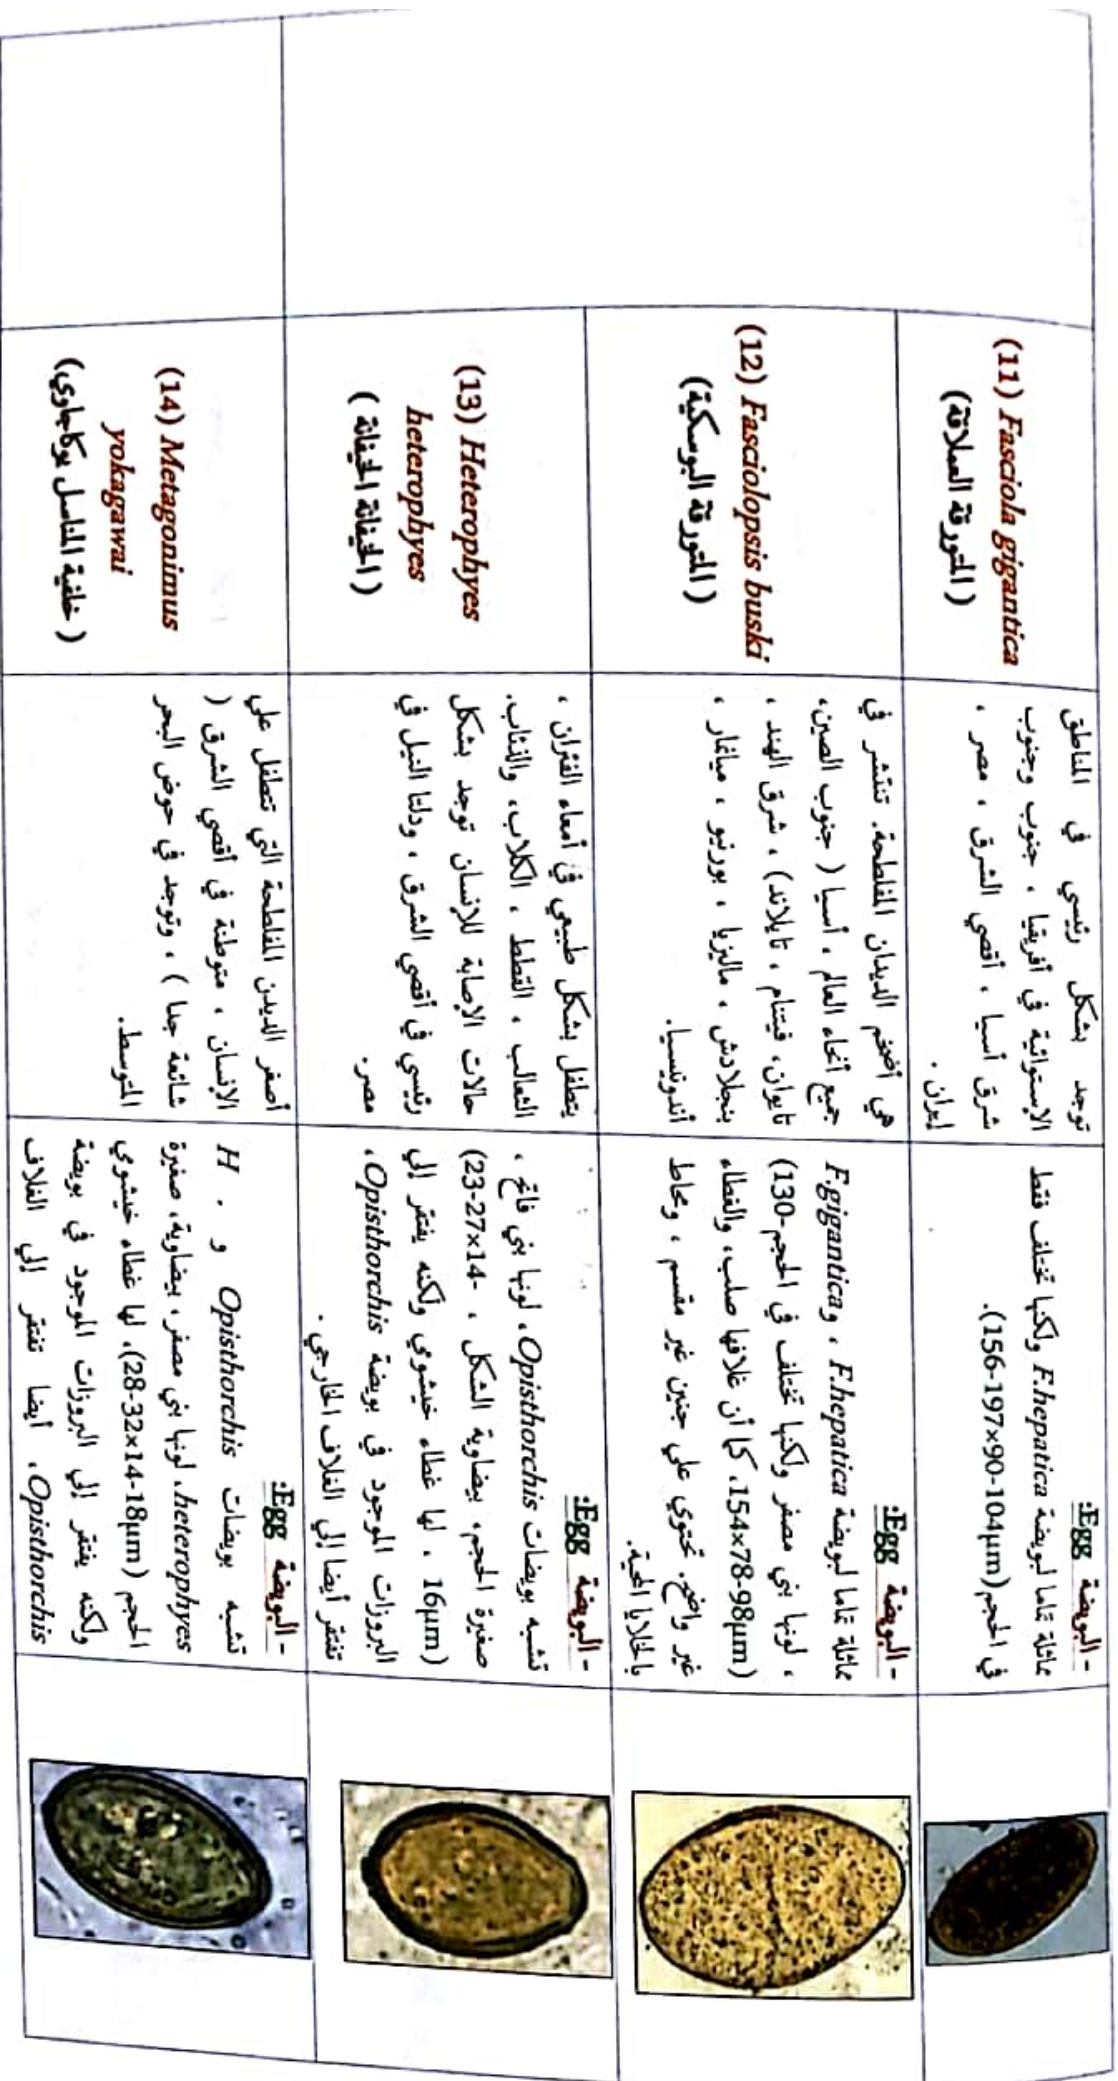 (11) Fasciola gigantica
(المتورقة العملاقة)
توجد بشكل رئيسي في المناطق
الإستوائية في أفريقيا ، جنوب وجنوب
شرق أسيا ، أقصي الشرق ، مصر ،
إيران .
- البويضة Egg:
مماثلة تماما لبويضة F.hepatica ولكنها تختلف فقط
في الحجم (156-197×90-104µm).
(12) Fasciolopsis buski
(المتورقة البوسكية)
هي أضخم الديدان المفلطحة. تنتشر في
جميع أنحاء العالم ، أسيا ( جنوب الصين،
تايوان، فيتنام ، تايلاند) ، شرق الهند ،
بنجلادش ، ماليزيا ، بورنيو ، ميانمار ،
أندونيسيا.
- البويضة Egg:
مماثلة تماما لبويضة F.hepatica ، وF.gigantica
، لونها بني مصفر ولكنها تختلف في الحجم (130-
154×78-98µm). كما أن غلافها صلب، والغطاء
غير واضح. تحتوي علي جنين غير مقسم ، ومحاط
بالخلايا المحية.
(13) Heterophyes
heterophyes
( الخيفانة الخيفانة )
يتطفل بشكل طبيعي في أمعاء الفئران ،
الثعالب ، القطط ، الكلاب، والذئاب.
حالات الإصابة للإنسان توجد بشكل
رئيسي في أقصي الشرق ، ودلتا النيل في
مصر.
- البويضة Egg:
تشبه بويضات Opisthorchis، لونها بني فاتح ،
صغيرة الحجم، بيضاوية الشكل ، (23-27×14-
16µm) ، لها غطاء خيشومي ولكنه يفتقر إلي
البروزات الموجود في بويضة Opisthorchis،
تفتقر أيضا إلي الغلاف الخارجي .
(14) Metagonimus
yokagawai
( خلفية المناسل يوكاجاوي)
أصغر الديدن المفلطحة التي تتطفل علي
الإنسان ، متوطنة في أقصي الشرق (
شائعة جدا ) ، وتوجد في حوض البحر
المتوسط.
- البويضة Egg:
تشبه بويضات Opisthorchis و H .
heterophyes، لونها بني مصفر، بيضاوية، صغيرة
الحجم (28-32×14-18µm)، لها غطاء خيشومي
ولكنه يفتقر إلي البروزات الموجود في بويضة
Opisthorchis، أيضا تفتقر إلي الغلاف